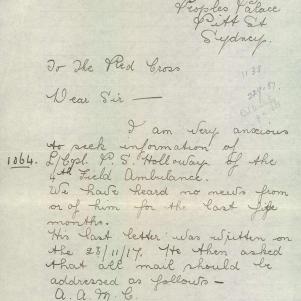 Peoples Palace
Pitt St
Sydney.
To The Red Cross
Dear Sir —
I am very anxious
to seek information of
1064. L/Cpl. P. S. Holloway of the
4th Field Ambulance.
We have heard no news from
or of him for the last five
months.
His last letter was written on
the 23/11/17. He then asked
that all mail should be
addressed as follows —
A. A. M. C.